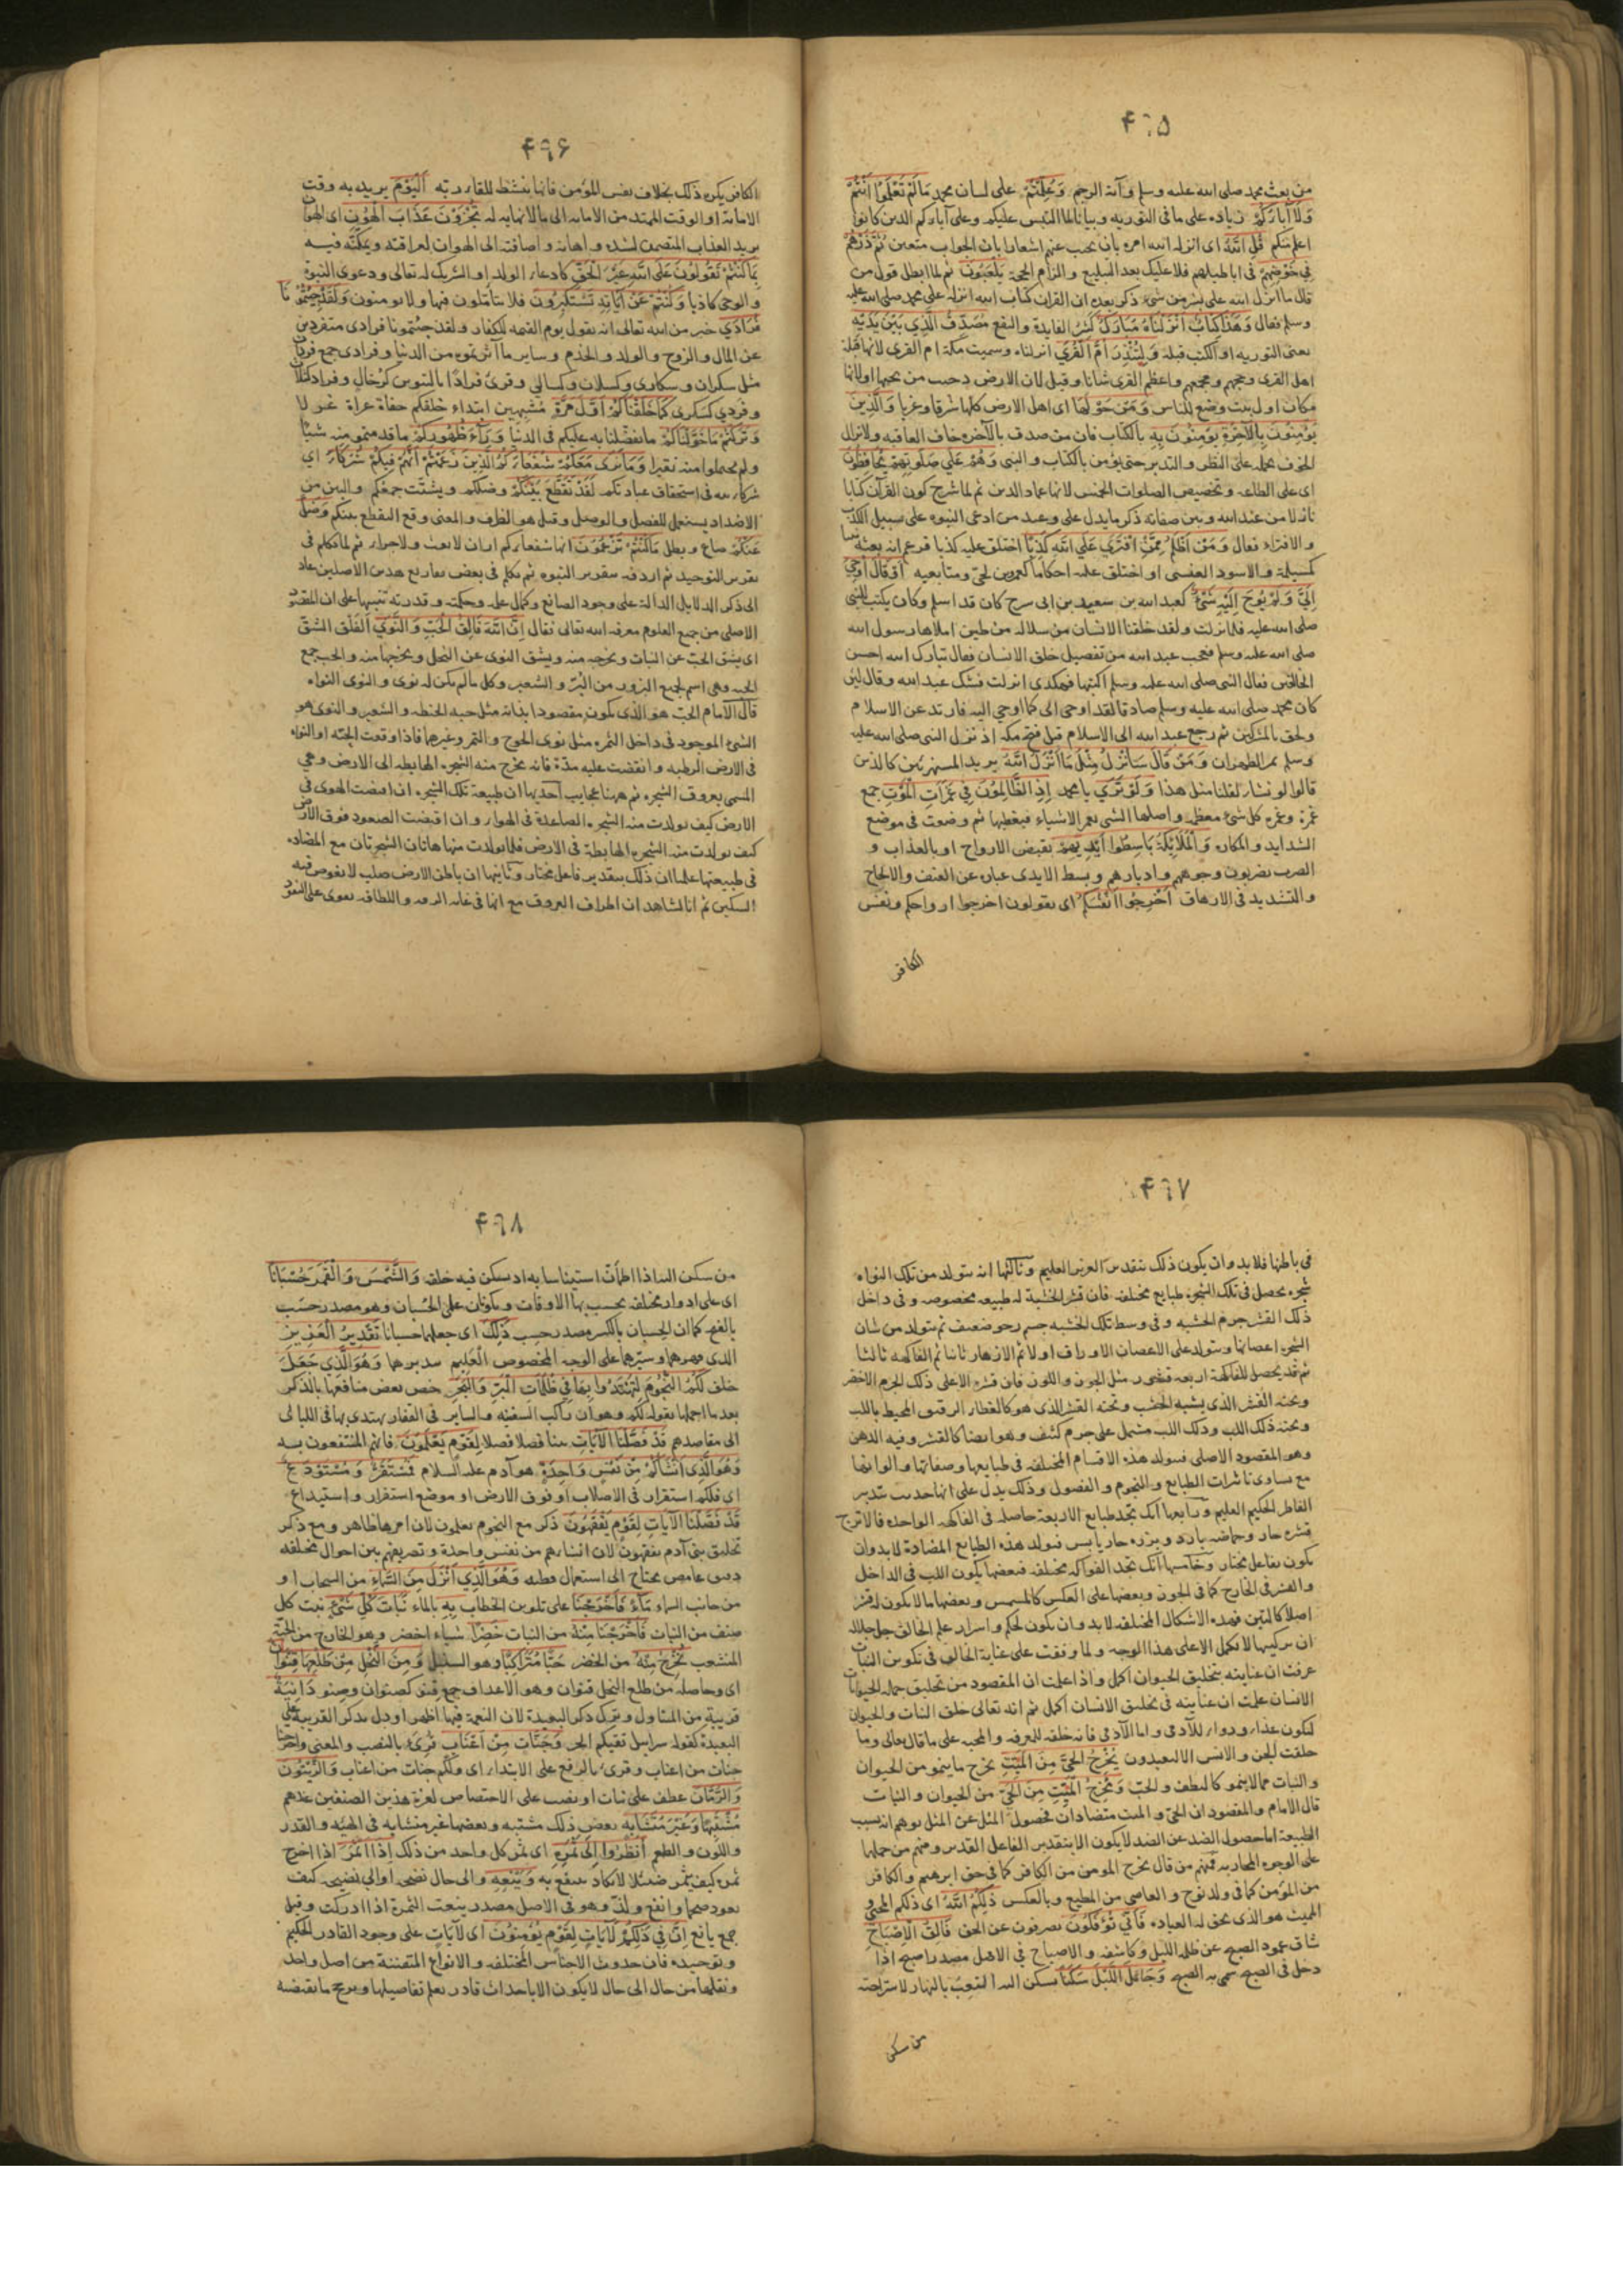 ۴٦۵
من بعث محمد صلى الله عليه وسلم وآية الرجم وَعُلِّمْتُمْ على لسان محمد مَا لَمْ تَعْلَمُوا أَنْتُمْ
وَلَا آبَاؤُكُمْ زياده على ما فى التوريه وبيانا لما التبس عليكم وعلى آبائكم الذين كانوا
اعلم منكم قُلِ اللهُ اى انزله الله امره بان يجيب عنهم اشعارا بان الجواب متعين ثُمَّ ذَرْهُمْ
فِي خَوْضِهِمْ فى اباطيلهم فلا عليك بعد التبليغ والزام الحجة يَلْعَبُونَ ثم لما ابطل قول من
قال ما انزل الله على بشر من شئ ذكر بعده ان القران كتاب الله انزله على محمد صلى الله عليه
وسلم فقال وَهَذَا كِتَابٌ أَنْزَلْنَاهُ مُبَارَكٌ كثير الفايدة والنفع مُصَدِّقُ الَّذِي بَيْنَ يَدَيْهِ
يعنى التوريه او الكتب قبله وَلِتُنْذِرَ أُمَّ الْقُرَى انزلناه وسميت مكة ام القرى لانها قبلة
اهل القرى وحجهم ومجمعهم واعظم القرى شانا وقيل لان الارض دحيت من تحتها او لانها
مكان اول بيت وضع للناس وَمَنْ حَوْلَهَا اى اهل الارض كلها شرقا وغربا وَالَّذِينَ
يُؤْمِنُونَ بِالْآخِرَةِ يُؤْمِنُونَ بِهِ بالكتاب فان من صدق بالآخره خاف العاقبه ولا يزال
الخوف يحمله على النظر والتدبر حتى يؤمن بالكتاب والنبى وَهُمْ عَلَى صَلَوتِهِمْ يُحَافِظُونَ
اى على الطاعه وتخصيص الصلوات الخمس لانها عماد الدين ثم لما شرح كون القرآن كتابا
نازلا من عند الله وبين صفاته ذكر ما يدل على وعيد من ادعى النبوه على سبيل الكذب
والافتراء فقال وَمَنْ أَظْلَمُ مِمَّنِ افْتَرَى عَلَى اللهِ كَذِبًا اختلق عليه كذبا فزعم انه بعثه نبيا
كمسيلمة والاسود العنسى او اختلق عليه احكاما كعمرو بن لحى ومتابعيه أَوْ قَالَ أُوحِيَ
إِلَيَّ وَلَمْ يُوحَ إِلَيْهِ شَيْءٌ كعبد الله بن سعيد بن ابى سرح كان قد اسلم وكان يكتب للنبى
صلى الله عليه فلما نزلت ولقد خلقنا الانسان من سلاله من طين املاها رسول الله
صلى الله عليه وسلم فعجب عبد الله من تفصيل خلق الانسان فقال تبارك الله احسن
الخالقين فقال النبى صلى الله عليه وسلم اكتبها فهكذى انزلت فشك عبد الله وقال لئن
كان محمد صلى الله عليه وسلم صادقا لقد اوحى الى كما اوحي اليه فارتد عن الاسلام
ولحق بالمشركين ثم رجع عبد الله الى الاسلام قبل فتح مكه اذ نزل النبى صلى الله عليه
وسلم بمر الظهران وَمَنْ قَالَ سَأُنْزِلُ مِثْلَ مَا أَنْزَلَ اللهُ يريد المستهزئين كالذين
قالوا لو نشاء لقلنا مثل هذا وَلَوْ تَرَى يا محمد إِذِ الظَّالِمُونَ فِي غَمَرَاتِ الْمَوْتِ جمع
غمرة وغمره كل شئ معظمه واصلها الشى يغمر الاشياء فيغطيها ثم وضعت فى موضع
الشدايد والمكاره وَالْمَلَائِكَةُ بَاسِطُوا أَيْدِيهِمْ بقبض الارواح او بالعذاب و
الضرب يضربون وجوههم وادبارهم وبسط الايدى عباره عن العنف والالحاح
والتشديد فى الارهاق أَخْرِجُوا أَنْفُسَكُمْ اى يقولون اخرجوا ارواحكم ونفس
الكافر
۴۹۶
الكافر يكره ذلك بخلاف نفس المؤمن فانها تنشط للقاء ربه الْيَوْمَ يريد به وقت
الاماتة او الوقت الممتد من الاماته الى ما لا نهايه له تُجْزَوْنَ عَذَابَ الْهُونِ اى الهوان
يريد العذاب المتضمن لشده واهانه واضافته الى الهوان لعراقته وتمكنه فيه
بِمَا كُنْتُمْ تَقُولُونَ عَلَى اللهِ غَيْرَ الْحَقِّ كادعاء الولد او الشريك له تعالى ودعوى النبوة
والوحى كاذبا وَكُنْتُمْ عَنْ آيَاتِهِ تَسْتَكْبِرُونَ فلا تتأملون فيها ولا تومنون وَلَقَدْ جِئْتُمُونَا
فُرَادَى خبر من الله تعالى انه يقول يوم القيمه للكفار ولقد جئتمونا فرادى متفردين
عن المال والزوج والولد والخدم وساير ما آثرتموه من الدنيا وفرادى جمع فردان
مثل سكران وسكارى وكسلان وكسالى وقرئ فرادًا بالتنوين كرُخال وفراد كثلاث
وفَردَى كسكرى كَمَا خَلَقْنَاكُمْ أَوَّلَ مَرَّةٍ مُشبِهين ابتداء خلقكم حفاة عراة غرلا
وَتَرَكْتُمْ مَا خَوَّلْنَاكُمْ ما تفضّلنا به عليكم فى الدنيا وَرَاءَ ظُهُورِكُمْ ما قدمتموه منه شيئا
ولم تحملوا منه نقيرا وَمَا نَرَى مَعَكُمْ شُفَعَاءَكُمُ الَّذِينَ زَعَمْتُمْ أَنَّهُمْ فِيكُمْ شُرَكَاءُ اي
شركاء لله فى استحقاق عبادتكم لَقَدْ تَقَطَّعَ بَيْنَكُمْ وصلكم وتشتّت جمعكم والبين من
الاضداد يستعمل للفصل والوصل وقيل هو الظرف والمعنى وقع التقطع بينكم وَضَلَّ
عَنْكُمْ ضاع وبطل مَا كُنْتُمْ تَزْعُمُونَ انها شفعاؤكم او ان لا بعث ولا جزاء ثم لما تكلم فى
تقرير التوحيد ثم اردفه بتقرير النبوه ثم تكلم فى بعض تفاريع هذين الاصلين عاد
الى ذكر الدلايل الدالة على وجود الصانع وكمال علمه وحكمته وقدرته تنبيها على ان المقصود
الاصلى من جميع العلوم معرفه الله تعالى فقال إِنَّ اللهَ فَالِقُ الْحَبِّ وَالنَّوَى الفلق الشق
اى يشق الحب عن النبات ويخرجه منه ويشق النوى عن النخل ويخرجها منه والحب جمع
الحبه وهى اسم لجميع البزور من البُرّ والشعير وكل ما لم يكن له نوى والنوى النواه
قال الامام الحب هو الذى يكون مقصودا بذاته مثل حبه الحنطه والشعير والنوى هو
الشئ الموجود فى داخل الثمره مثل نوى الخوخ والتمر وغيرهما فاذا وقعت الحبّه او النواه
فى الارض الرطبه وانقضت عليه مدّة فانه يخرج منه الشجره الهابطه الى الارض وهي
المسمى بعروق الشجره ثم ههنا عجايب احديها ان طبيعة تلك الشجره ان اقتضت الهوى فى
الارض كيف تولدت منه الشجره الصاعدة فى الهواء وان اقتضت الصعود فوق الارض
كيف تولدت منه الشجره الهابطة فى الارض فلما تولدت منها هاتان الشجرتان مع المضاده
فى طبيعتها علمنا ان ذلك بتقدير فاعل مختار وثانيها ان باطن الارض صلب لا يغوص فيه
السكين ثم انا نشاهد ان اطراف العروق مع انها فى غايه الرقه واللطافه تقوى على النفوذ
۴٦٧
فى باطنها فلا بد وان يكون ذلك بتقدير العزيز العليم وثالثها انه يتولد من تلك النواه
شجره يحصل فى تلك الشجره طبايع مختلفه فان قشر الخشبة له طبيعه مخصوصه وفى داخل
ذلك القشر جرم الخشبه وفى وسط تلك الخشبه جسم رخو ضعيف ثم يتولد من شان
الشجره اغصانها ويتولد على الاغصان الاوراق اولا ثم الازهار ثانيا ثم الفاكهه ثالثا
ثم قد يحصل للفاكهة اربعه قشور مثل الجوز واللوز فان قشره الاعلى ذلك الجرم الاخضر
وتحته القشر الذى يشبه الخشب وتحته القشر الذى هو كالغطاء الرقيق المحيط باللب
وتحته ذلك اللب وذلك اللب مشتمل على جرم كثيف وهو ايضا كالقشر وفيه الدهن
وهو المقصود الاصلى فتولد هذه الاقسام المختلفه فى طبايعها وصفاتها والوانها
مع تساوى تاثيرات الطبايع والنجوم والفصول وذلك يدل على انها حدثت بتدبير
الفاطر الحكيم العليم ورابعها انك تجد طبايع الاربعة حاصله فى الفاكهه الواحده فالاترج
قشره حار وحماضه بارد وبزره حار يابس فتولد هذه الطبايع المتضادة لا بد وان
يكون بفاعل مختار وخامسها انك تجد الفواكه مختلفه فبعضها يكون اللب فى الداخل
والقشر فى الخارج كما فى الجوز وبعضها على العكس كالمشمس وبعضها ما لا يكون له قشر
اصلا كالتين فهذه الاشكال المختلفه لا بد وان يكون لحكم واسرار علم الخالق جل جلاله
ان تركيبها لا تكمل الا على هذا الوجه ولما وقفت على عناية الخالق فى تكوين النبات
عرفت ان عنايته بتخليق الحيوان اكمل واذا علمت ان المقصود من تخليق جمله الحيوانات
الانسان علمت ان عنايته فى تخليق الانسان اكمل ثم انه تعالى خلق النبات والحيوان
لتكون غذاء ودواء للآدمى واما الآدمى فانه خلقه للمعرفه والمحبه على ما قال تعالى وما
خلقت الجن والانس الا ليعبدون يُخْرِجُ الْحَيَّ مِنَ الْمَيِّتِ يخرج ما ينمو من الحيوان
والنبات مما لا ينمو كالنطف والحب وَمُخْرِجُ الْمَيِّتِ مِنَ الْحَيِّ من الحيوان والنبات
قال الامام والمقصود ان الحى والميت متضادان فحصول المثل عن المثل يوهم انه بسبب
الطبيعة اما حصول الضد عن الضد لا يكون الا بتقدير الفاعل القدير ومنهم من حملها
على الوجوه المجازيه فمنهم من قال يخرج المومن من الكافر كما فى حق ابرهيم والكافر
من المؤمن كما فى ولد نوح والعاصى من المطيع وبالعكس ذَلِكُمُ اللهُ اى ذلكم المحيى و
المميت هو الذى يحق له العباده فَأَنَّى تُؤْفَكُونَ تصرفون عن الحق فَالِقُ الْإِصْبَاحِ
شاق عمود الصبح عن ظلمه الليل وكاشفه والاصباح فى الاصل مصدر اصبح اذا
دخل فى الصبح سمى به الصبح وَجَاعِلُ اللَّيْلِ سَكَنًا يسكن اليه التعِبُ بالنهار لاستراحته
من سكن
۴٦٨
من سكن اليه اذا اطمأنّ استيناسا به او يسكن فيه خلقه وَالشَّمْسَ وَالْقَمَرَ حُسْبَانًا
اى على ادوار مختلفه يحسب بها الاوقات ويكونان على الحُسبان وهو مصدر حسَب
بالفتح كما ان الحِسبان بالكسر مصدر حسِب ذَلِكَ اى جعلهما حسبانا تَقْدِيرُ الْعَزِيزِ
الذى قهرهما وسيّرهما على الوجه المخصوص الْعَلِيمِ بتدبيرهما وَهُوَ الَّذِي جَعَلَ
خلق لَكُمُ النُّجُومَ لِتَهْتَدُوا بِهَا فِي ظُلُمَاتِ الْبَرِّ وَالْبَحْرِ خص بعض منافعها بالذكر
بعد ما اجملها بقوله لكم وهو ان راكب السفينه والساير فى القفار يهتدى بها فى الليالى
الى مقاصدهم قَدْ فَصَّلْنَا الْآيَاتِ بينا فصلا فصلا لِقَوْمٍ يَعْلَمُونَ فانهم المنتفعون به
وَهُوَ الَّذِي أَنْشَأَكُمْ مِنْ نَفْسٍ وَاحِدَةٍ هو آدم عليه السلام فَمُسْتَقَرٌّ وَمُسْتَوْدَعٌ
اى فلكم استقرار فى الاصلاب او فوق الارض او موضع استقرار واستيداع
قَدْ فَصَّلْنَا الْآيَاتِ لِقَوْمٍ يَفْقَهُونَ ذكر مع النجوم يعلمون لان امرها ظاهر ومع ذكر
تخليق بنى آدم يفقهون لان انشاءهم من نفس واحدة وتصريفهم بين احوال مختلفه
دقيق غامض يحتاج الى استعمال فطنه وَهُوَ الَّذِي أَنْزَلَ مِنَ السَّمَاءِ من السحاب او
من جانب السماء مَاءً فَأَخْرَجْنَا على تلوين الخطاب بِهِ بالماء نَبَاتَ كُلِّ شَيْءٍ نبت كل
صنف من النبات فَأَخْرَجْنَا مِنْهُ من النبات خَضِرًا شياء اخضر وهو الخارج من الحبّة
المتشعب نُخْرِجُ مِنْهُ من الخضر حَبًّا مُتَرَاكِبًا وهو السنبل وَمِنَ النَّخْلِ مِنْ طَلْعِهَا قِنْوَانٌ
اى وحاصله من طلع النخل قنوان وهو الاعذاق جمع قِنو كصنوان وصِنو دَانِيَةٌ
قريبة من المتناول وترك ذكر البعيدة لان النعمة فيها اظهر او دل بذكر القريبه على
البعيدة كقوله سرابيل تقيكم الحر وَجَنَّاتٍ مِنْ أَعْنَابٍ قرئ بالنصب والمعنى واخرجنا
جنات من اعناب وقرئ بالرفع على الابتداء اى ولكم جنات من اعناب وَالزَّيْتُونَ
وَالرُّمَّانَ عطف على نبات او نصب على الاختصاص لعزة هذين الصنفين عندهم
مُشْتَبِهًا وَغَيْرَ مُتَشَابِهٍ بعض ذلك مشتبه وبعضها غير متشابه فى الهيئه والقدر
واللون والطعم أُنْظُرُوا إِلَى ثَمَرِهِ اى ثمر كل واحد من ذلك إِذَا أَثْمَرَ اذا اخرج
ثمره كيف يثمر ضئيلا لا يكاد ينتفع به وَيَنْعِهِ والى حال نضجه او الى نضيجه كيف
يعود ضخما وانفع ولذّ وهو فى الاصل مصدر ينعت الثمرة اذا ادركت وقيل
جمع يانع إِنَّ فِي ذَلِكُمْ لَآيَاتٍ لِقَوْمٍ يُؤْمِنُونَ اى لآيات على وجود القادر الحكيم
وتوحيده فان حدوث الاجناس المختلفه والانواع المتفننة من اصل واحد
ونقلها من حال الى حال لا يكون الا باحداث قادر يعلم تفاصيلها ويرجح ما تقتضيه